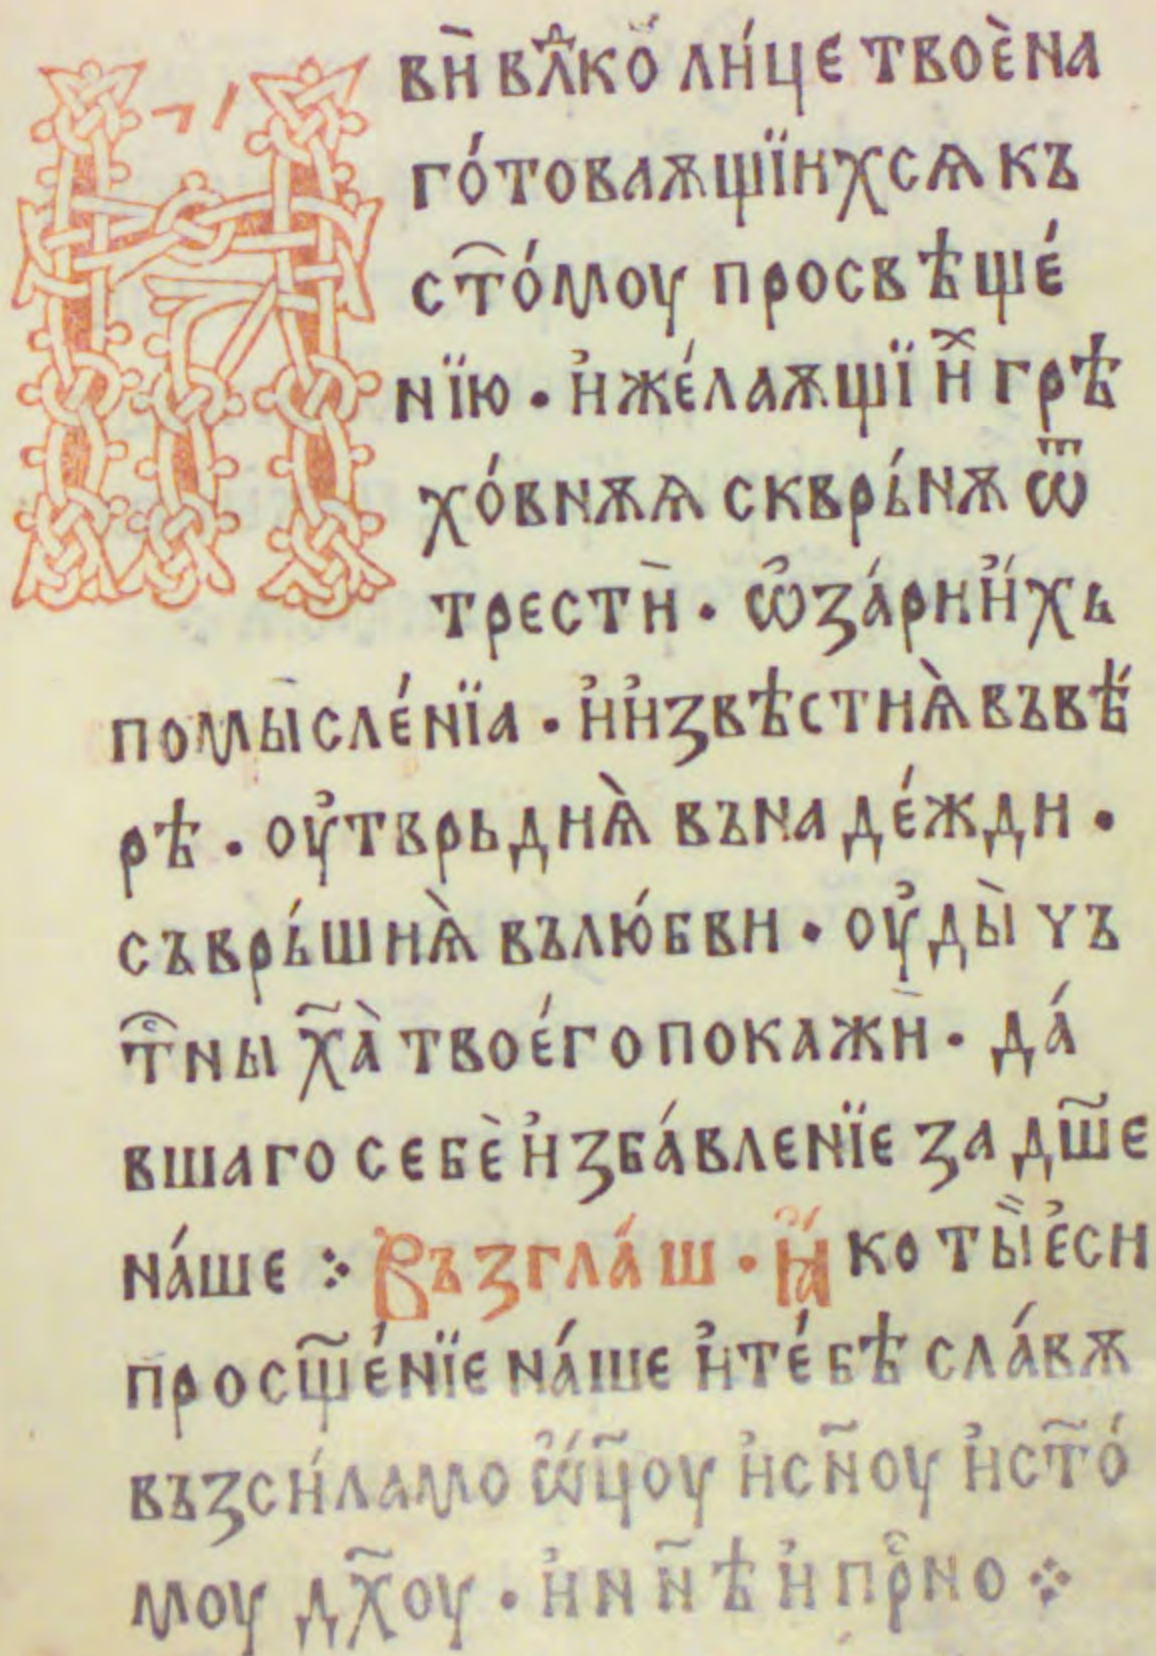 Ꙗви̇̀ влⷣко̋ ли́це твоѐ на
го́товаѫщїихсѧ къ
ст҃о́моу просвѣще́
нїю · и҆же́лаѫщїи̇ⷯ грѣ
хо́внѫѧ сквры́нѫ ѿ
трести̇̀ · ѡ҆за́рии҆́хь
помы̄сле́нїа · и҆и҆звѣстиѧ̀ въвѣ́
рѣ · оу҆твръдиѧ̀ въна де́жди ·
съвры́шиѧ̀ вълю́бви · оу҆ды̀ чъ
тⷭ҇ны х҃а̀ твое́го покажи̇̀ · да́
вшаго себѐ и҆зба́вленїе за дш҃е
на́ше ⁘ Възгла́ш · ꙗ҆́ко ты̏ є҆си
просщ҃е́нїе на́ше и҆те́бѣ сла́вѫ
възси́ламо ѡ҆́ц҃оу и҆сн҃оу и҆ст҃о́
моу дх҃оу · и҆нн҃ѣ и҆прⷭ҇но ⁘